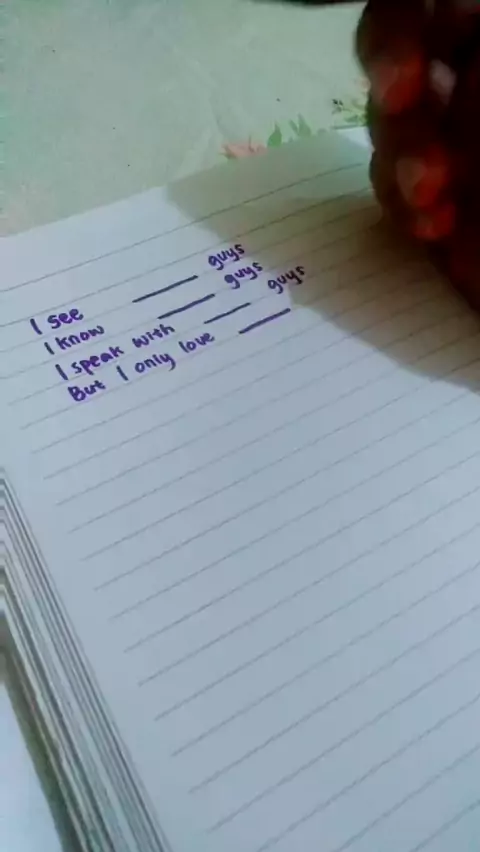 I see ______ guys
I know ______ guys
I speak with _____ guys
But I only love _____